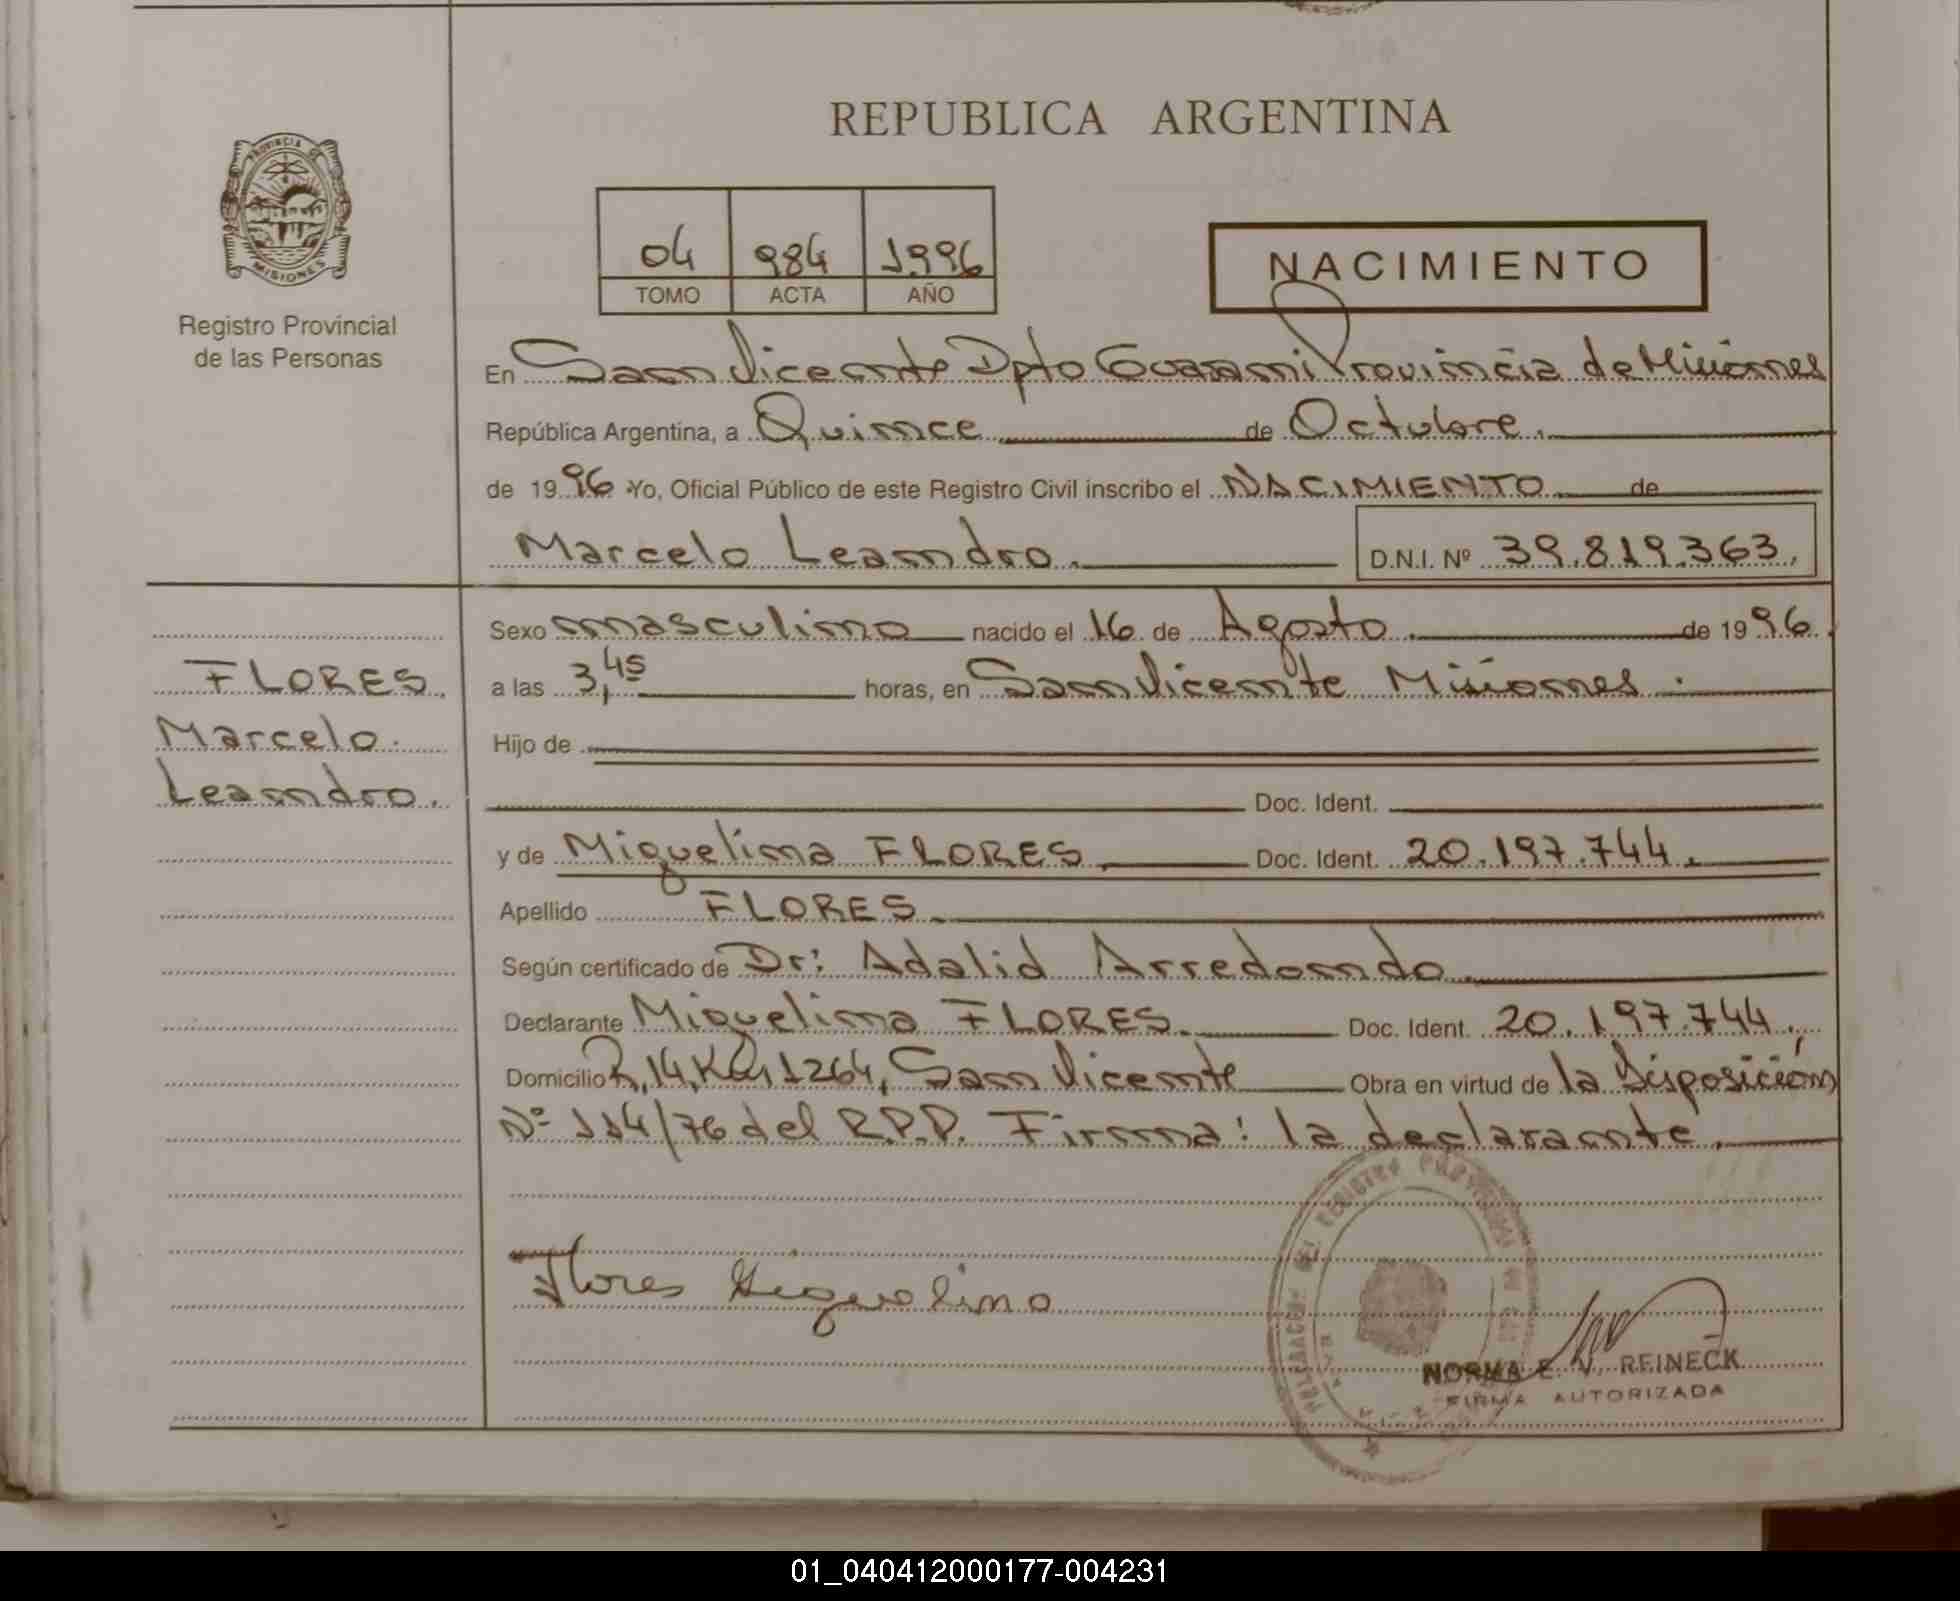 REPUBLICA ARGENTINA
PROVINCIA DE
MISIONES
Registro Provincial
de las Personas
04 984 1996
TOMO ACTA AÑO
NACIMIENTO
En San Vicente Dpto Guarani Provincia de Misiones
República Argentina, a Quince de Octubre.
de 1996 Yo, Oficial Público de este Registro Civil inscribo el NACIMIENTO de
Marcelo Leandro. D.N.I. Nº 39.819.363.
Sexo masculino nacido el 16 de Agosto de 1996.
FLORES.
Marcelo.
Leandro.
a las 3,45 horas, en San Vicente Misiones.
Hijo de
Doc. Ident.
y de Miguelina FLORES. Doc. Ident. 20.197.744.
Apellido FLORES.
Según certificado de Dr: Adalid Arredondo.
Declarante Miguelina FLORES. Doc. Ident. 20.197.744.
Domicilio R,14,Km 1264, San Vicente Obra en virtud de la Disposición
Nº 114/76 del R.P.P. Firma: la declarante.
Flores Miguelina
NORMA E. V. REINECK
FIRMA AUTORIZADA
01_040412000177-004231